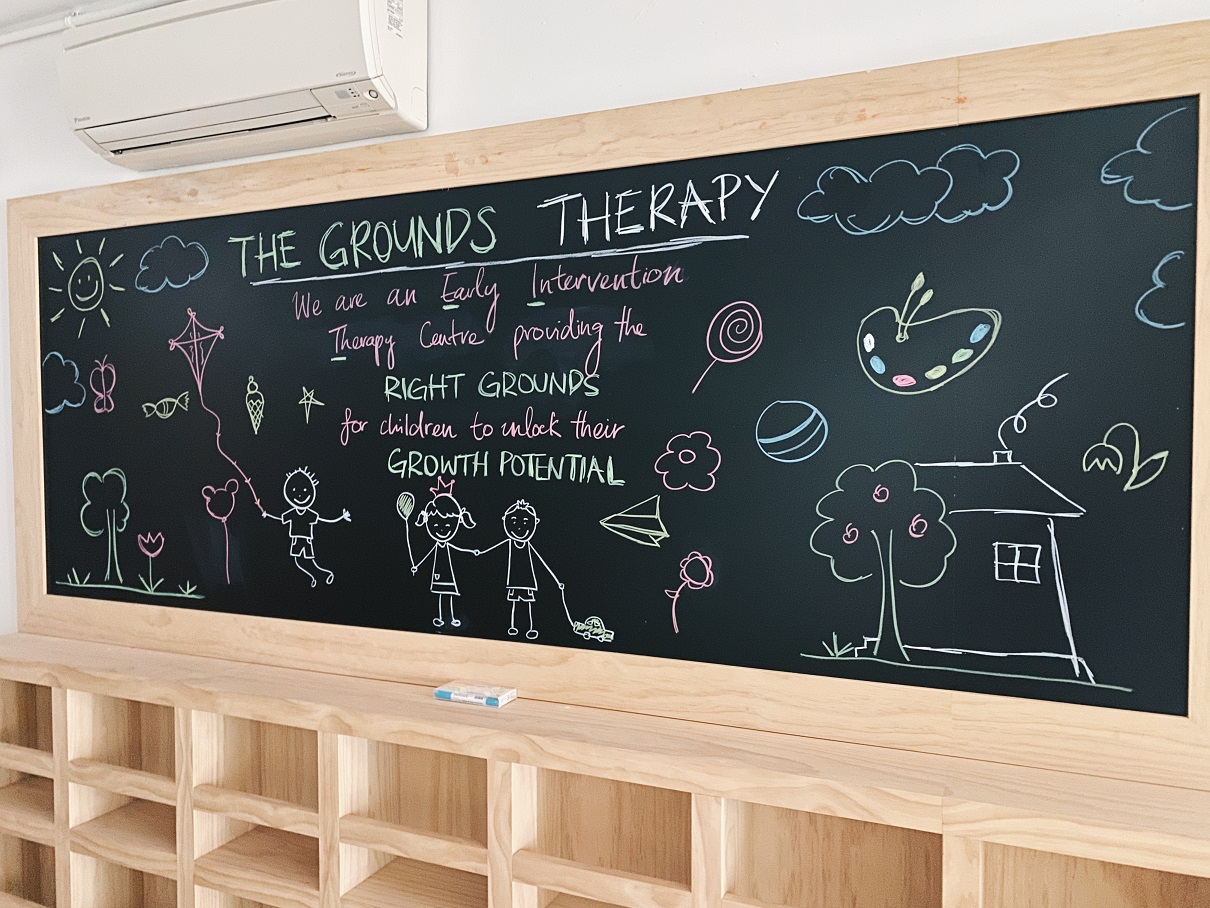 THE GROUNDS THERAPY
We are an Early Intervention
Therapy Centre providing the
RIGHT GROUNDS
for children to unlock their
GROWTH POTENTIAL